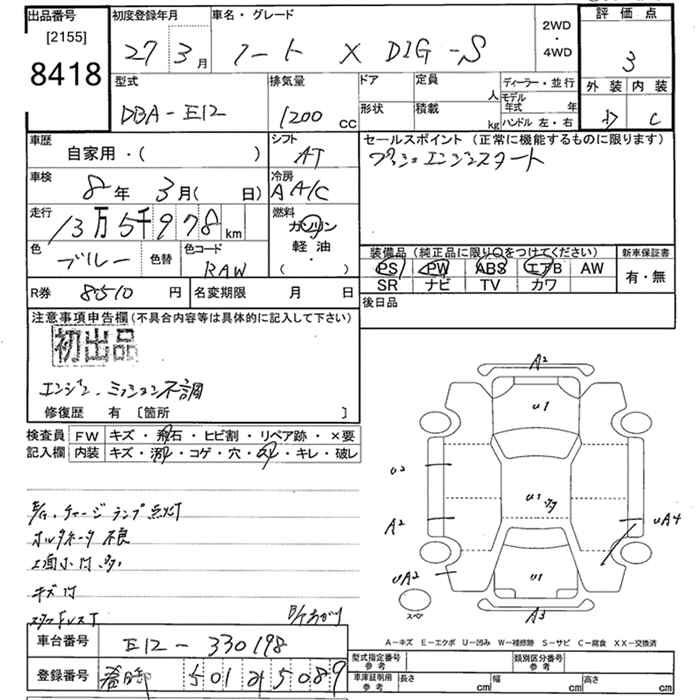 出品番号
[2155]
8418
初度登録年月
27 3月
車名・グレード
ノート X DIG-S
2WD
・
4WD
評価点
3
外装 内装
D C
型式
DBA-E12
排気量
1200 cc
ドア
定員
人
形状
積載
kg
ディーラー・並行
モデル年式 年
ハンドル 左・右
車歴
自家用・( )
シフト
AT
セールスポイント (正常に機能するものに限ります)
プッシュエンジンスタート
車検
8年 3月( 日)
冷房
A A/C
走行
13万5千978km
燃料
ガソリン
軽油
・
( )
色
ブルー
色替
色コード
RAW
装備品 (純正品に限り○をつけてください)
PS PW ABS エアB AW
SR ナビ TV カワ
新車保証書
有・無
R券 8510 円
名変期限 月 日
後日品
注意事項申告欄(不具合内容等は具体的に記入して下さい)
初出品
エンジン、ミッション不調
修復歴 有 〔箇所 〕
検査員 FW キズ・飛石・ヒビ割・リペア跡・×要
記入欄 内装 キズ・汚れ・コゲ・穴・スレ・キレ・破レ
チャージランプ点灯
オルタネータ不良
キズ有
A2
U1
U2
U1
A2
UA4
UA2
U1
A3
スペ
A-キズ E-エクボ U-凹み W-補修跡 S-サビ C-腐食 XX-交換済
車台番号
E12-330198
登録番号
501 5089
型式指定番号
参考
類別区分番号
参考
車庫証明用
参考
長さ cm
幅 cm
高さ cm